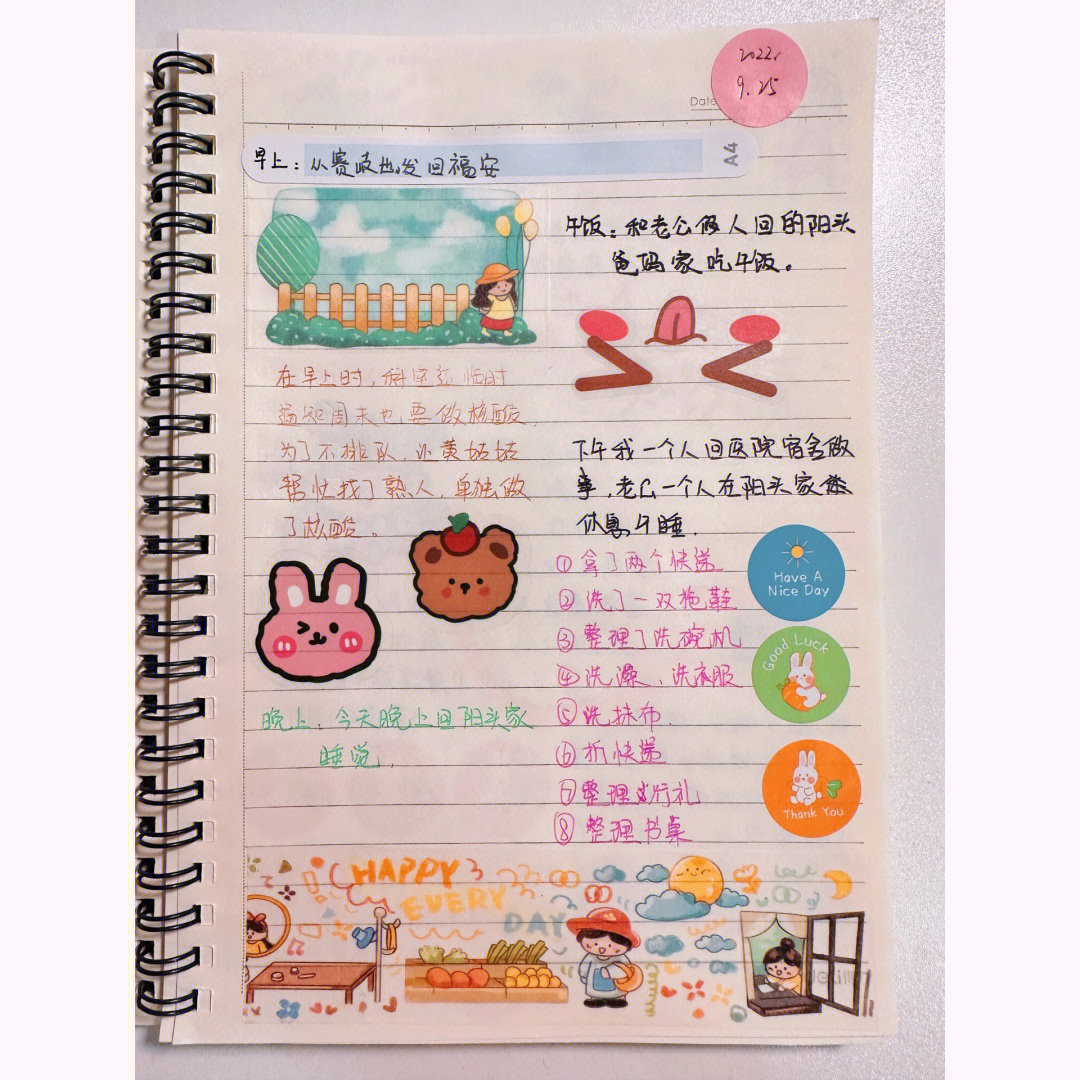 2022.
9.25
Date
早上：从赛岐出发回福安
A4
午饭：和老公俩人回的阳头
爸妈家吃午饭。
在早上时，科室还临时
通知周末也要做核酸，
为了不排队，让黄姑姑
帮忙找了熟人，单独做
了核酸。
下午我一个人回医院宿舍做
事，老公一个人在阳头家
休息午睡.
①拿了两个快递
②洗了一双拖鞋
③整理了洗碗机
④洗澡、洗衣服
⑤洗抹布.
⑥拆快递
⑦整理行礼
⑧整理书桌
Have A
Nice Day
Good Luck
Thank You
晚上：今天晚上回阳头家
睡觉.
HAPPY
EVERY
DAY